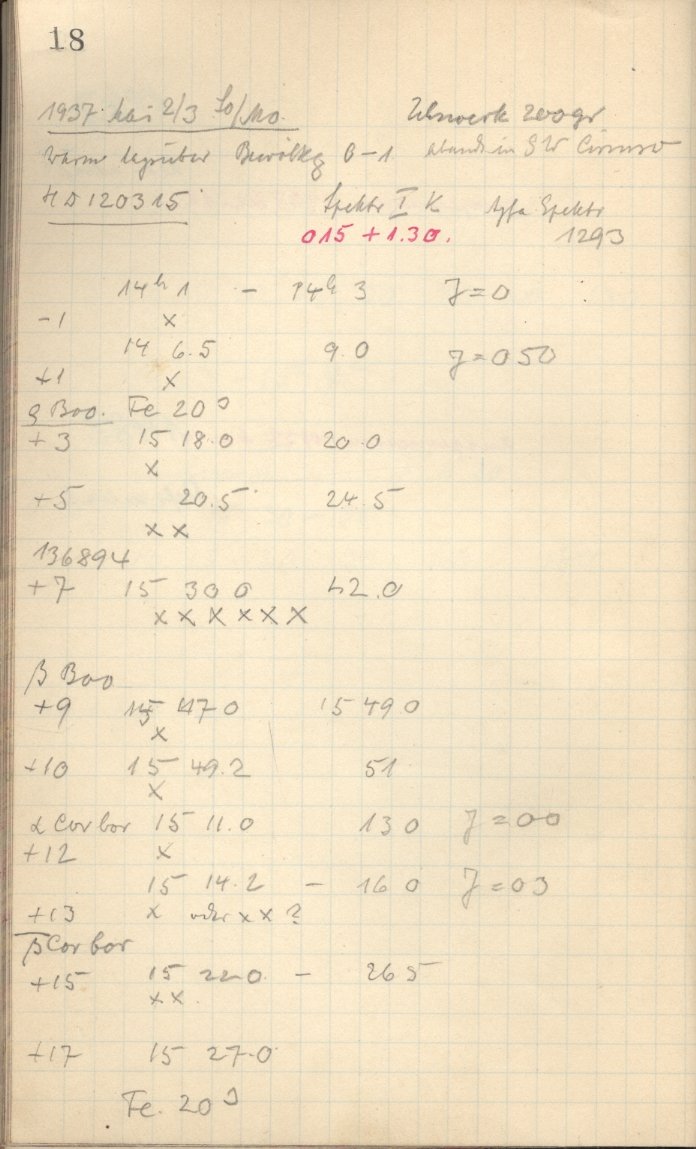 18
1937 Mai 2/3 So/Mo. Uhrwerk 200gr
Warm tagsüber Bewölkg 0-1 abends in SW Cirren
HD 120315 Spektr I K Agfa Spektr
015 + 1.30. 1293
14h 1 - 14h 3 J=0
-1 x
14 6.5 9.0 J=0 50
+1 x
Boo. Fe 20
+3 15 18.0 20.0
x
+5 20.5 24.5
x x
136894
+7 15 30 0 42.0
x x x x x x
β Boo
+9 15 47 0 15 49 0
x
+10 15 49.2 51
x
α Cor bor 15 11.0 13 0 J=00
+12 x
15 14.2 - 16 0 J=03
+13 x oder x x ?
β Cor bor
+15 15 22 0 - 26 5
x x.
+17 15 27.0
Fe. 20